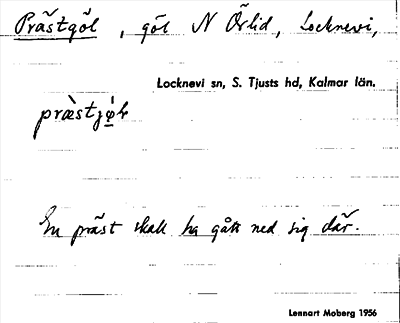 Prästgöl, göl N Örlid, Locknevi,
Locknevi sn, S. Tjusts hd, Kalmar län.
præ̀stjø̀l
En präst skall ha gått ned sig där.
Lennart Moberg 1956